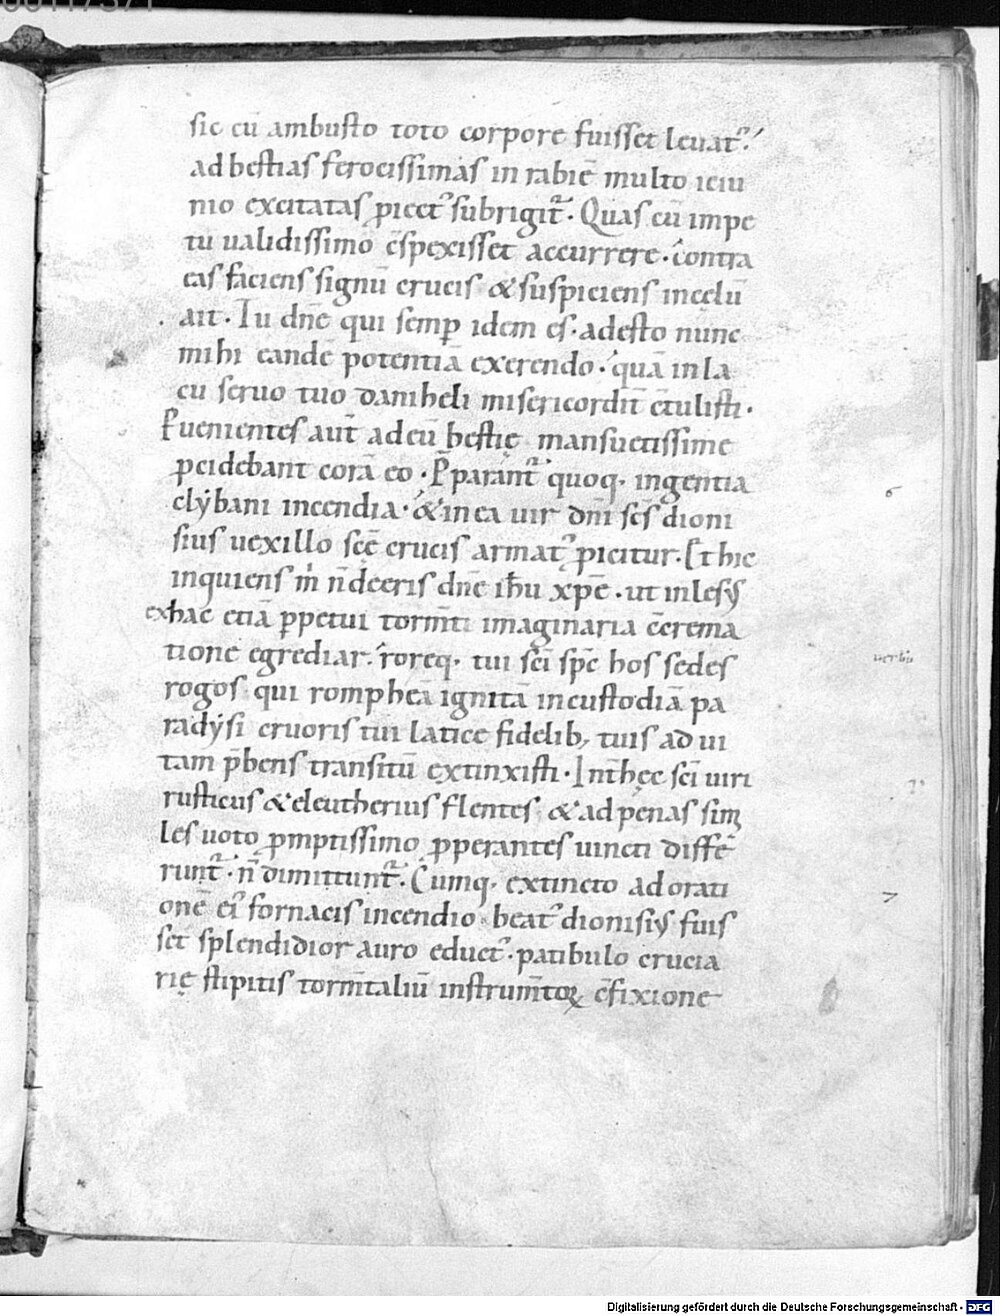 00117371
sic cū ambusto toto corpore fuisset leuatꝰ.
ad bestias ferocissimas in rabiē multo ieiu
nio excitatas ꝓiectꝰ subrigit᷑. Quas cū impe
tu ualidissimo c̄spexisset accurrere. contra
eas faciens signū crucis & suspiciens in cęlū
ait. Tu dn̄e qui semꝑ idem es. adesto nunc
mihi eandē potentiā exerendo. quā in la
cu seruo tuo daniheli misericordit̄ c̄tulisti.
Puenientes aut̄ ad eū bestię mansuetissime
ꝓcidebant corā eo. P̄parant᷑ quoq. ingentia
clẏbani incendia. & in ea uir dn̄i sc̄s dioni
sius uexillo sc̄ę crucis armatꝰ ꝓicitur. Et hic
inquiens m̄ n̄ deeris dn̄e ih̄u xp̄e. ut inlesꝰ
ex hac etiā ꝑpetui torm̄ti imaginaria c̄crema
tione egrediar. roreq. tui sc̄i sp̄c hos sedes
rogos qui rompheā ignitā in custodiā pa
radẏsi cruoris tui latice fidelib; tuis ad ui
tam p̄bens transitū extinxisti. Int̄ hęc sc̄i uiri
rusticus & eleutherius flentes & ad penas simi
les uoto ꝓmptissimo ꝓperantes uincti diffe
runt᷑. n̄ dimittunt᷑. Cumq. extincto ad orati
onē eiꝰ fornacis incendio beatꝰ dionisiꝰ fuis
set splendidior auro eductꝰ. patibulo crucia
rię stipitis torm̄taliū instrum̄toꝝ c̄fixione
verbis
Digitalisierung gefördert durch die Deutsche Forschungsgemeinschaft - DFG